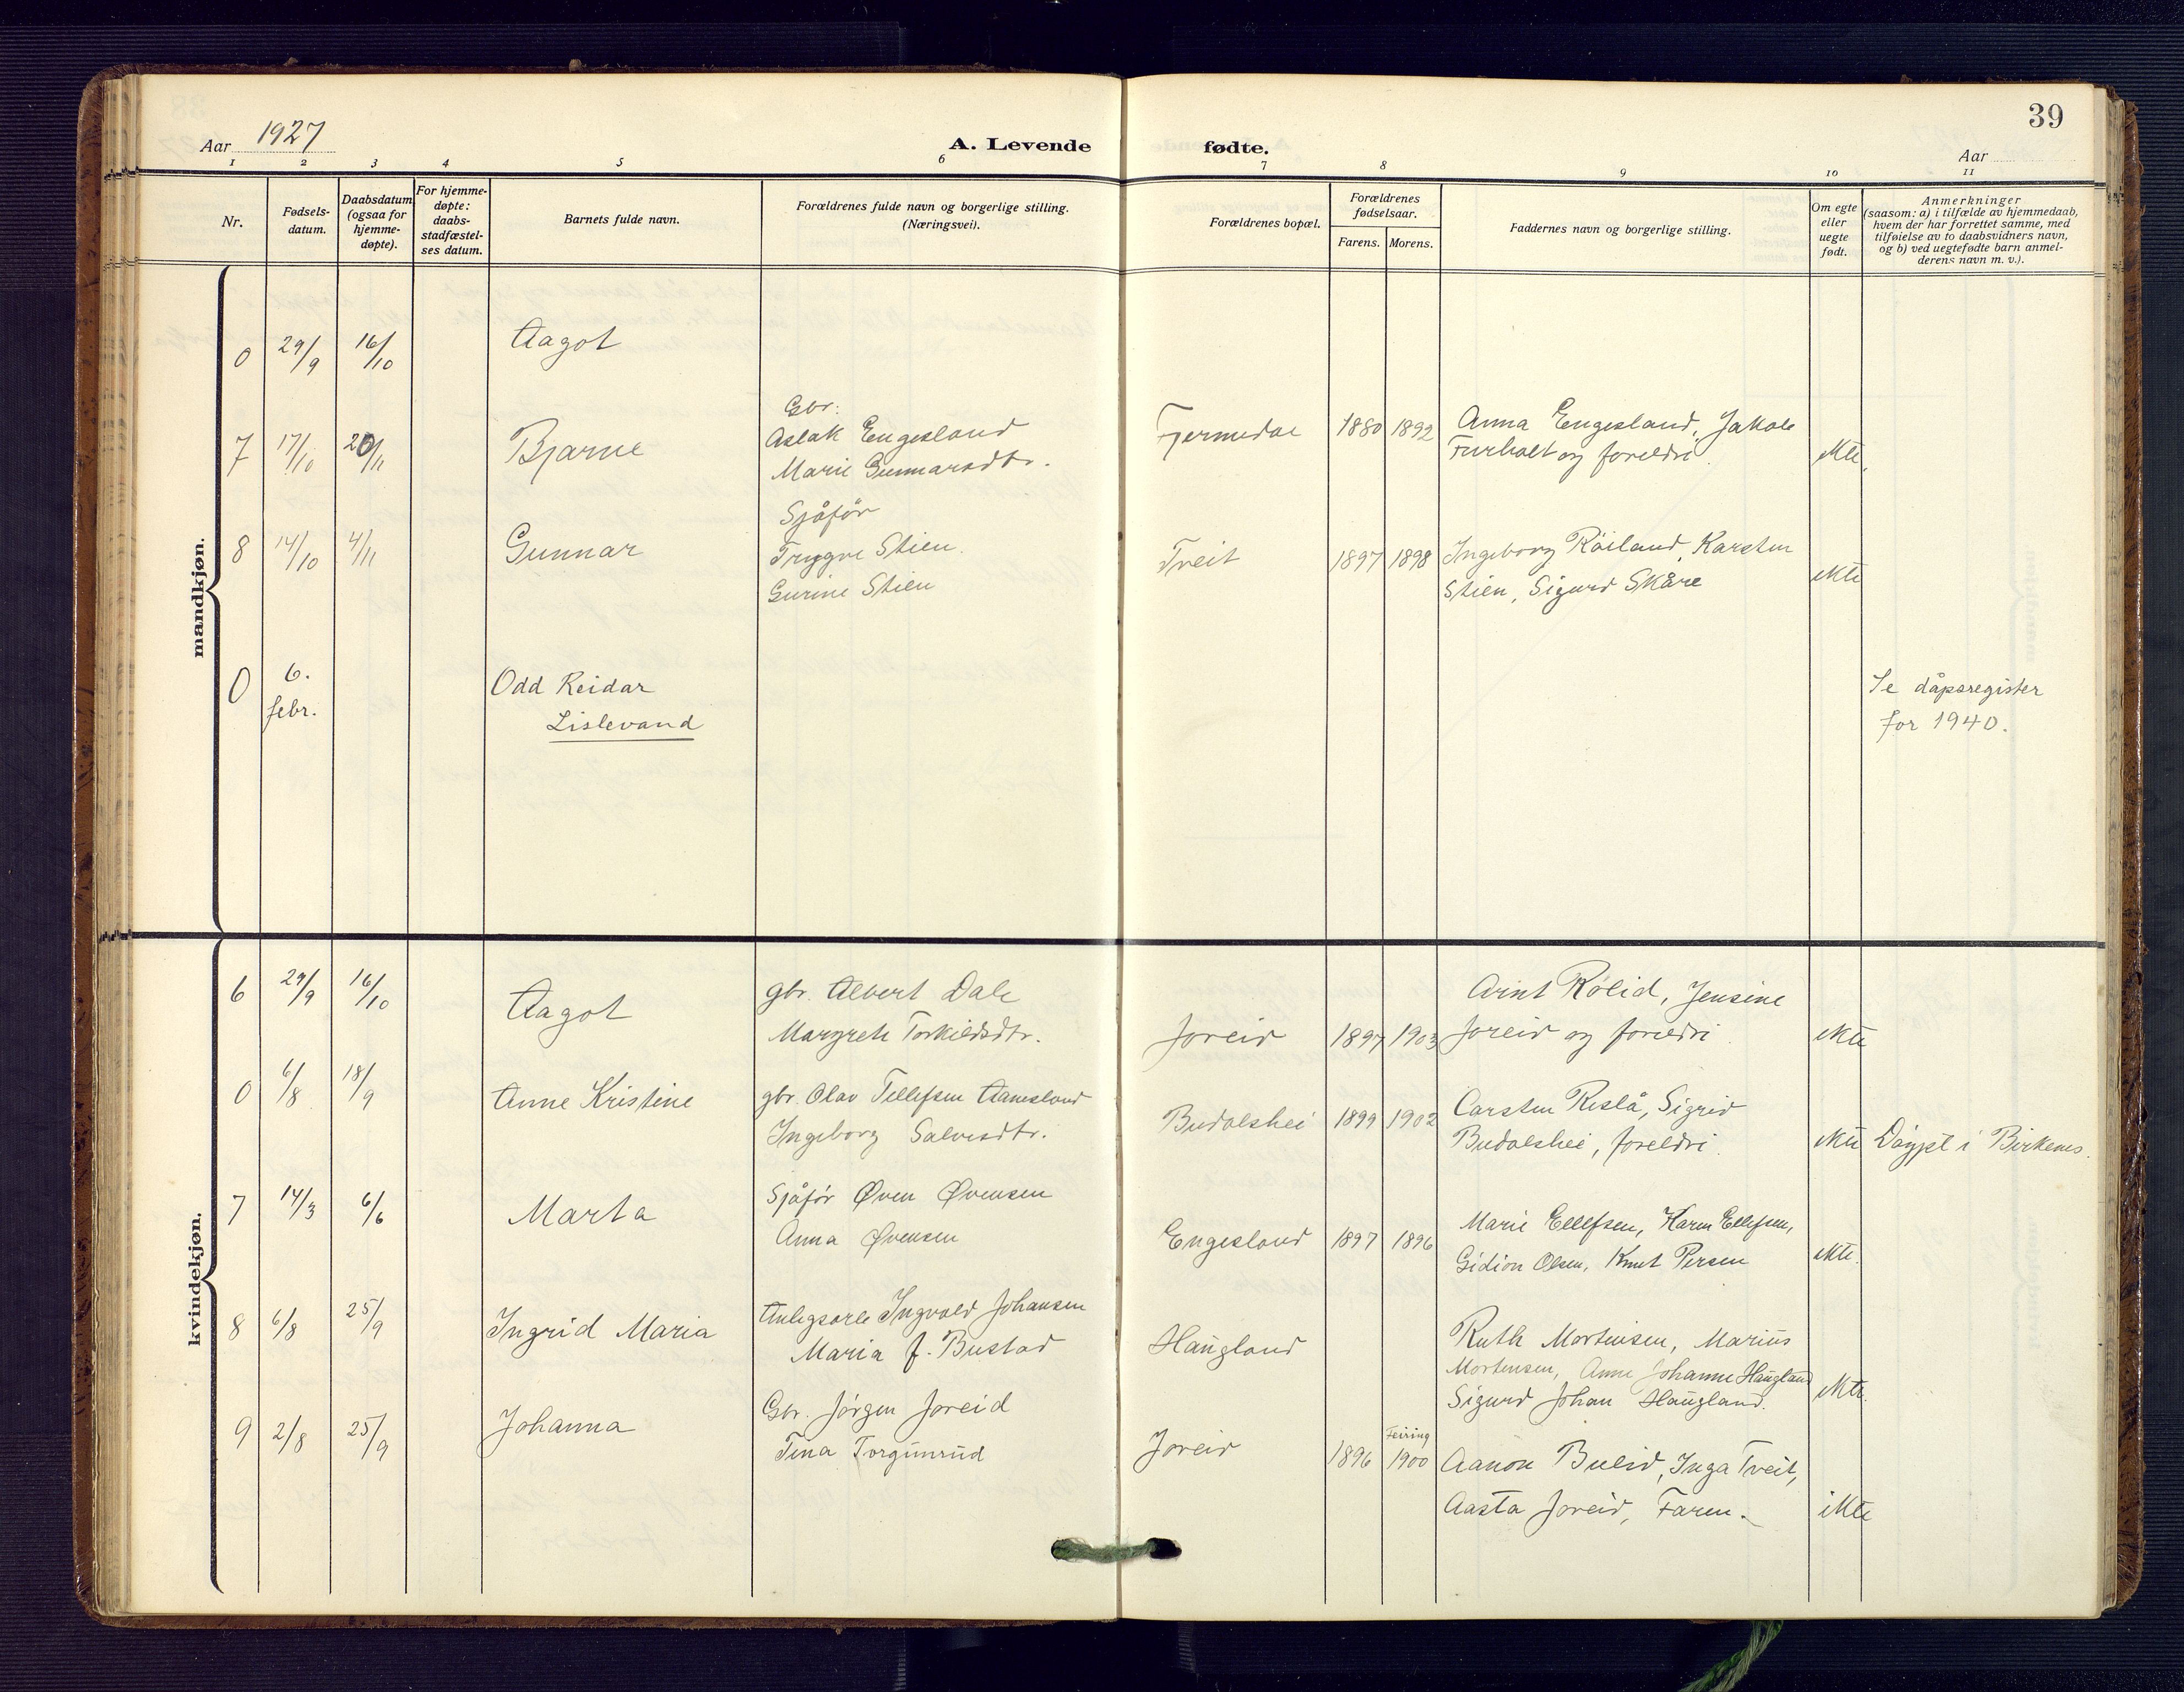 39
Aar 1927
A. Levende fødte.
Aar
1 2 3 4 5 6 7 8 9 10 11
Nr.
Fødsels-
datum.
Daabsdatum
(ogsaa for
hjemme-
døpte).
For hjemme-
døpte:
daabs-
stadfæstel-
ses datum.
Barnets fulde navn.
Forældrenes fulde navn og borgerlige stilling.
(Næringsvei).
Forældrenes bopæl.
Forældrenes
fødselsaar.
Farens. Morens.
Faddernes navn og borgerlige stilling.
Om egte
eller
uegte
født.
Anmerkninger
(saasom: a) i tilfælde av hjemmedaab,
hvem der har forrettet samme, med
tilføielse av to daabsvidners navn,
og b) ved uegtefødte barn anmel-
derens navn m. v.).
mandkjøn.
0 29/9 16/10 Aagot
7 17/10 20/11 Bjarne
Gbr.
Aslak Engesland
Marie Gunnarsdtr.
Fjermedal 1880 1892
Anna Engesland, Jakob
Furholt og foreldri.
ekte.
8 14/10 4/11 Gunnar
Sjåfør
Trygve Stien.
Gurine Stien
Tveit 1897 1898
Ingeborg Røiland, Karsten
Stien, Sigurd Skåre
ekte
0 6.
febr.
Odd Reidar
Lislevand
Se dåpsregister
for 1940.
kvindekjøn.
6 29/9 16/10 Aagot
gbr. Albert Dale
Margrete Torkildsdtr.
Joreid 1897 1903
Arint Rølid, Jensine
Joreid og foreldri
ekte
0 6/8 18/9 Anne Kristine
gbr. Olav Tellefsen Aanesland
Ingeborg Salvesdtr.
Budalshei 1899 1902
Carsten Reslå, Sigrid
Budalshei, foreldri.
ekte Døypt i Birkenes.
7 14/3 6/6 Marta
Sjåfør Øven Øvensen
Anna Øvensen
Engesland 1897 1896
Marie Ellefsen, Karen Ellefsen,
Gidion Olsen, Knut Persen
ekte.
8 6/8 25/9 Ingrid Maria
Anlegsarb Ingvald Johansen
Maria f. Bustad
Haugland
Ruth Mortensen, Marius
Mortensen, Anne Johanne Haugland
Sigurd Johan Haugland.
ekte.
9 2/8 25/9 Johanna
Gbr. Jørgen Joreid
Tina Torgunrud
Joreid 1896 Feiring
1900
Aanon Bulid, Inga Tveit,
Aasta Joreid, Faren.
ekte